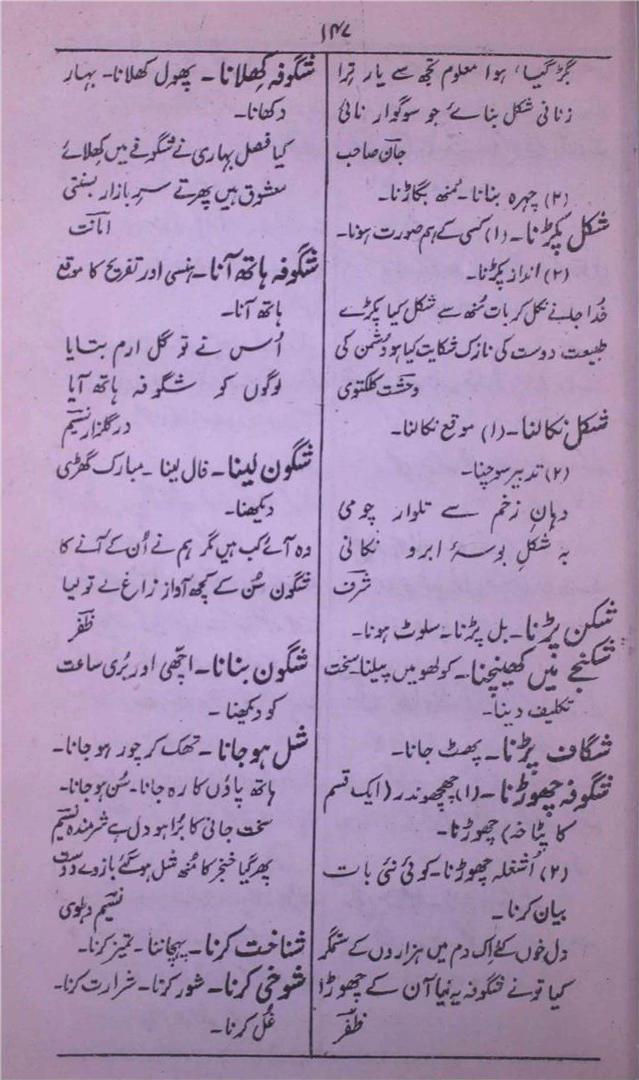 ۱۴۷
بگڑ گیا، ہوا معلوم تجھ سے یار ترا
زنانی شکل بنائے جو سوگوار نائی
جان صاحب
(۲) چہرہ بنانا۔ مُنھ بگاڑنا۔
شکل پکڑنا۔ (۱) کسی کے ہم صورت ہونا۔
(۲) انداز پکڑنا۔
خدا جانے نکل کر بات مُنھ سے شکل کیا پکڑے
طبیعت دوست کی نازک شکایت کیا ہو دشمن کی
وحشت کلکتوی
شکل نکالنا۔ (۱) موقع نکالنا۔
(۲) تدبیر سوچنا۔
دہانِ زخم سے تلوار چومی
بہ شکلِ بوسۂ ابرو نکالی
شرف
شکن پڑنا۔ بل پڑنا۔ سلوٹ ہونا۔
شکنجے میں کھینچنا۔ کولھو میں پیلنا۔ سخت
تکلیف دینا۔
شگاف پڑنا۔ پھٹ جانا۔
شگوفہ چھوڑنا۔ (۱) چھچھوندر (ایک قسم
کا پٹاخہ) چھوڑنا۔
(۲) اُشغلہ چھوڑنا۔ کوئی نئی بات
بیان کرنا۔
دل خوں کئے اِک دم میں ہزاروں کے ستمگر
کیا تونے شگوفہ یہ نیا آن کے چھوڑا
ظفر
شگوفہ کِھلانا۔ پھول کھلانا۔ بہار
دکھانا۔
کیا فصل بہاری نے شگوفے ہیں کھلائے
معشوق ہیں پھرتے سرِ بازار بسنتی
امانت
شگوفہ ہاتھ آنا۔ ہنسی اور تفریح کا موقع
ہاتھ آنا۔
اُس نے تو گل ارم بتایا
لوگوں کو شگوفہ ہاتھ آیا
در گلزار نسیم
شگون لینا۔ فال لینا۔ مبارک گھڑی
دیکھنا۔
وہ آئے کب ہیں مگر ہم نے اُن کے آنے کا
شگون سُن کے کچھ آواز زاغ لے تو لیا
ظفر
شگون بنانا۔ اچھی اور بُری ساعت
کو دیکھنا۔
شل ہو جانا۔ تھک کر چور ہو جانا۔
ہاتھ پاؤں کا رہ جانا۔ سُن ہو جانا۔
سخت جانی کا بُرا ہو دل ہے شرمندہ نسیم
پھر گیا خنجر کا مُنھ شل ہو گئے بازوے دوست
نسیم دہلوی
شناخت کرنا۔ پہچاننا۔ تمیز کرنا۔
شوخی کرنا۔ شور کرنا۔ شرارت کرنا۔
غُل کرنا۔